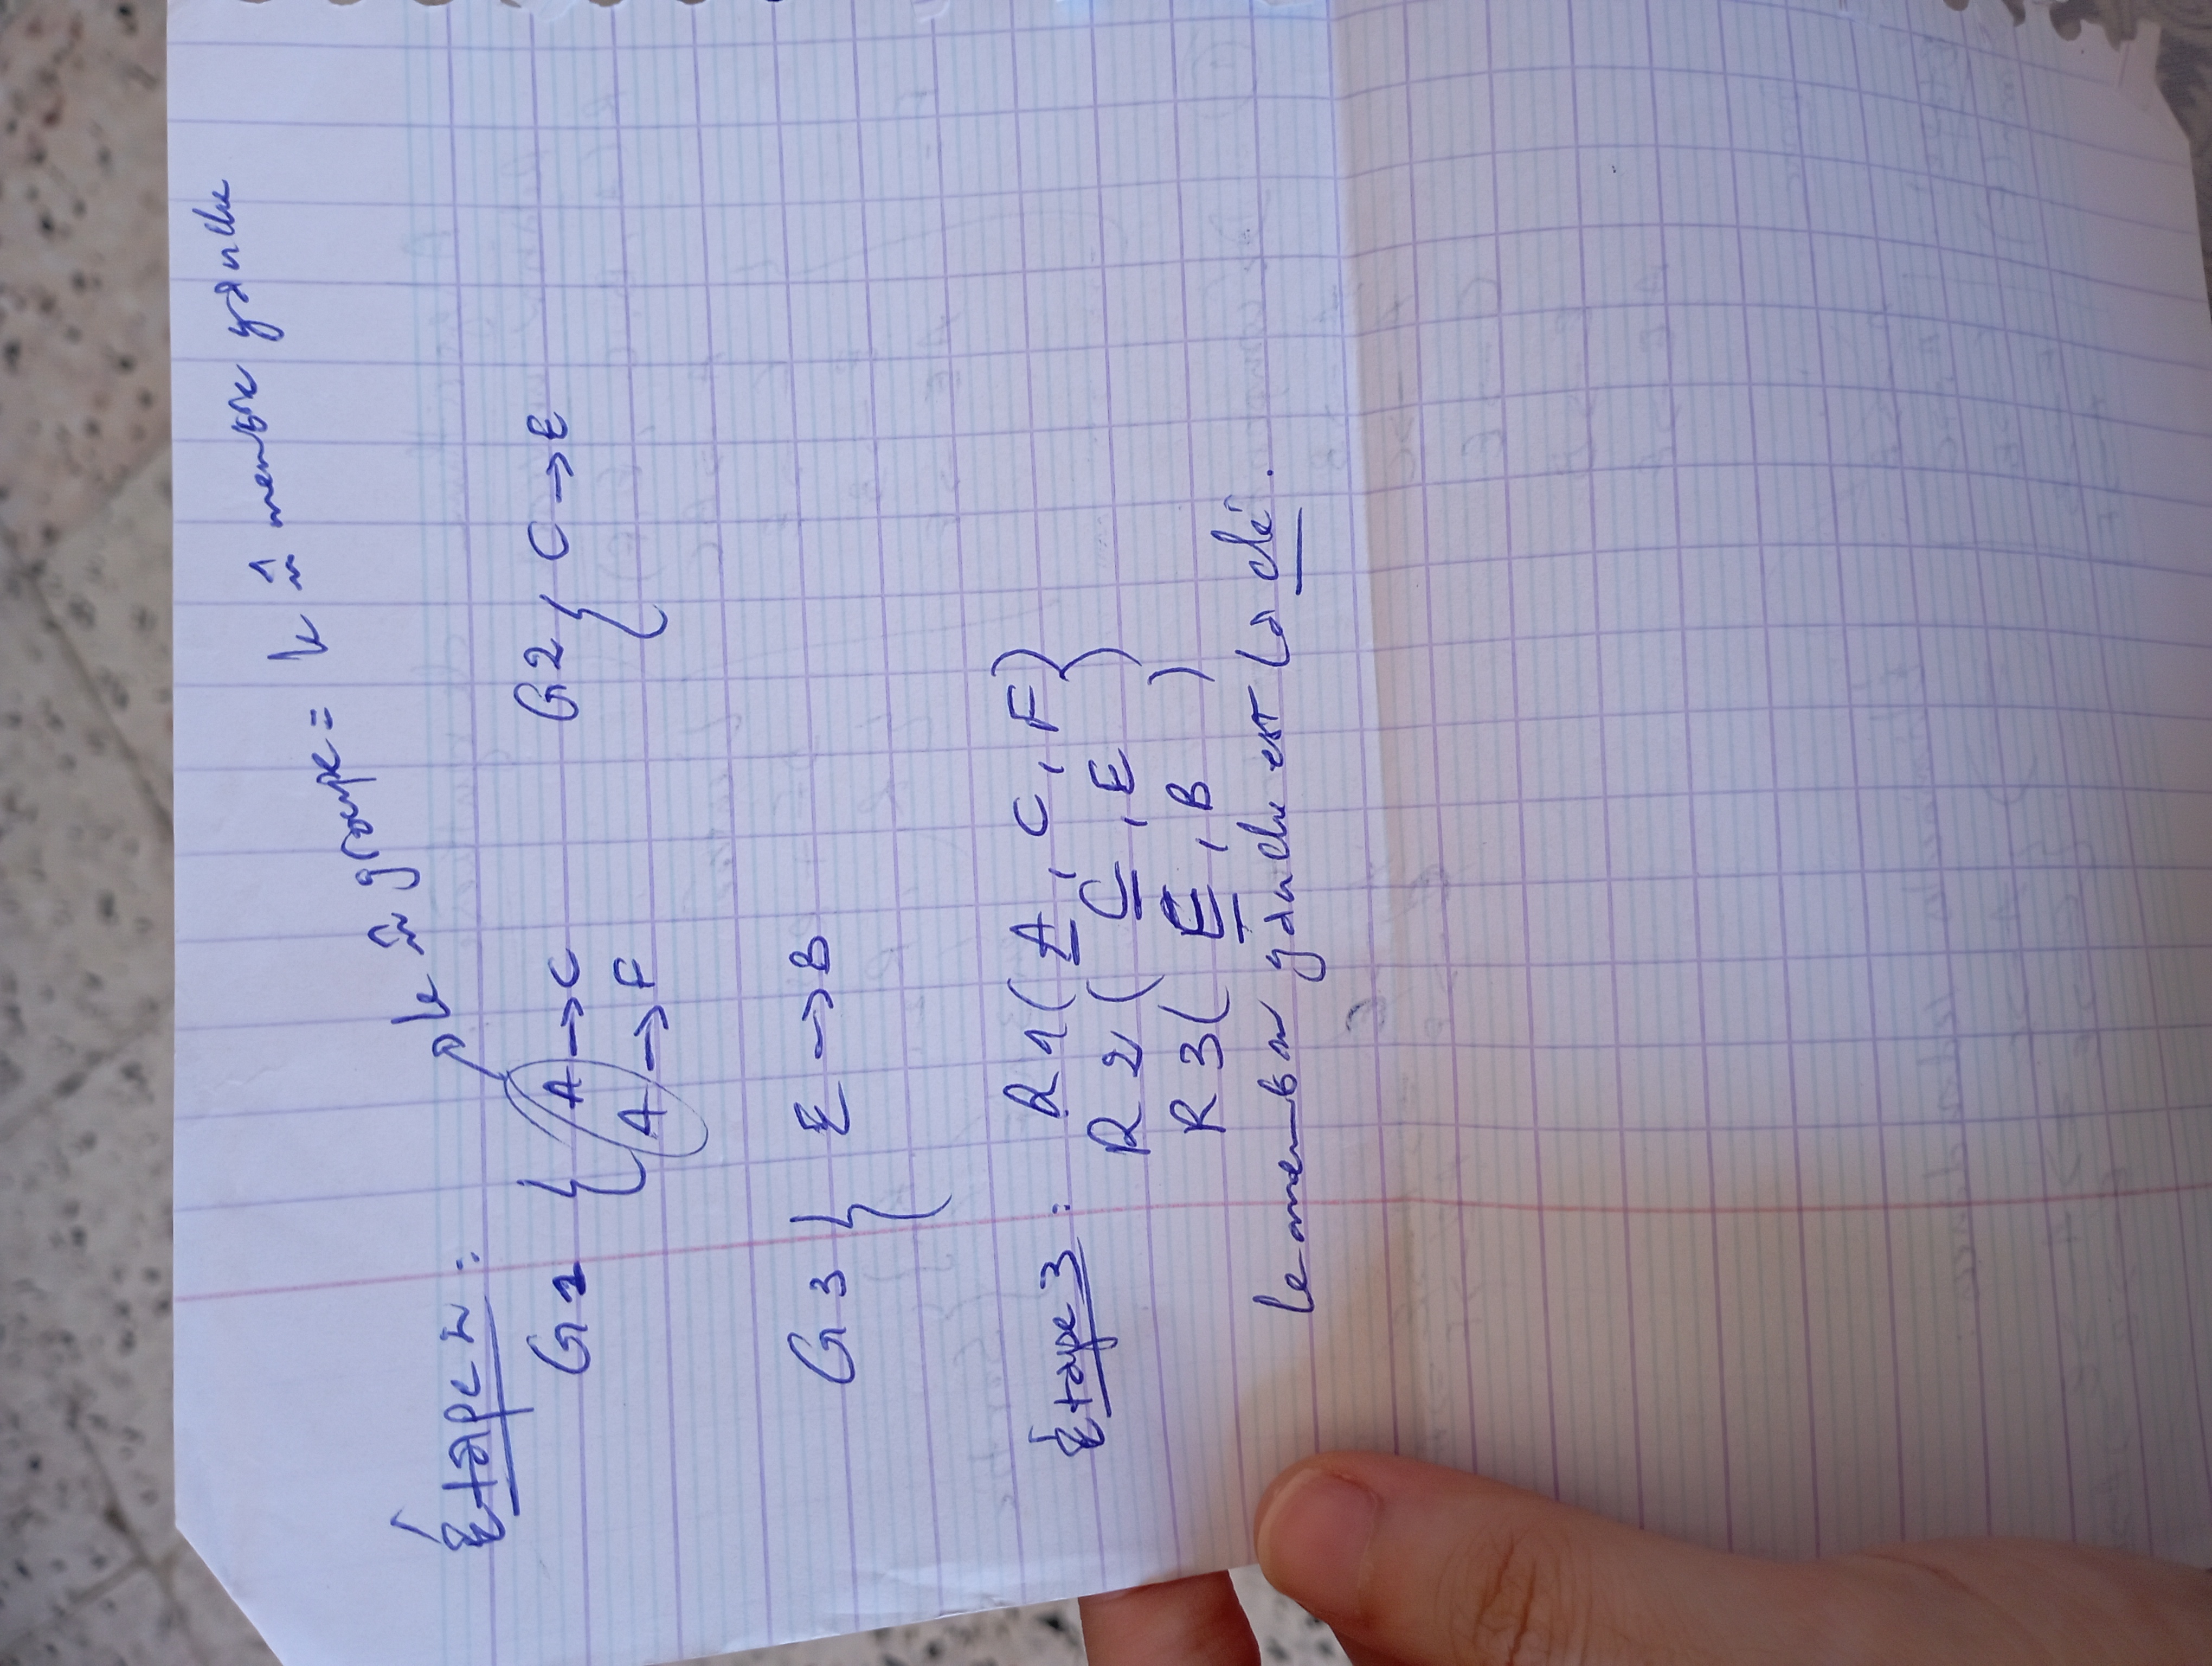 le m̂ groupe = le m̂ membre gauche
Étape 2 :
G1 { A → C
A → F
G2 { C → E
G3 { E → B
Étape 3 : R1( A , C, F)
R2( C , E )
R3( E , B )
le membre gauche est la clé.